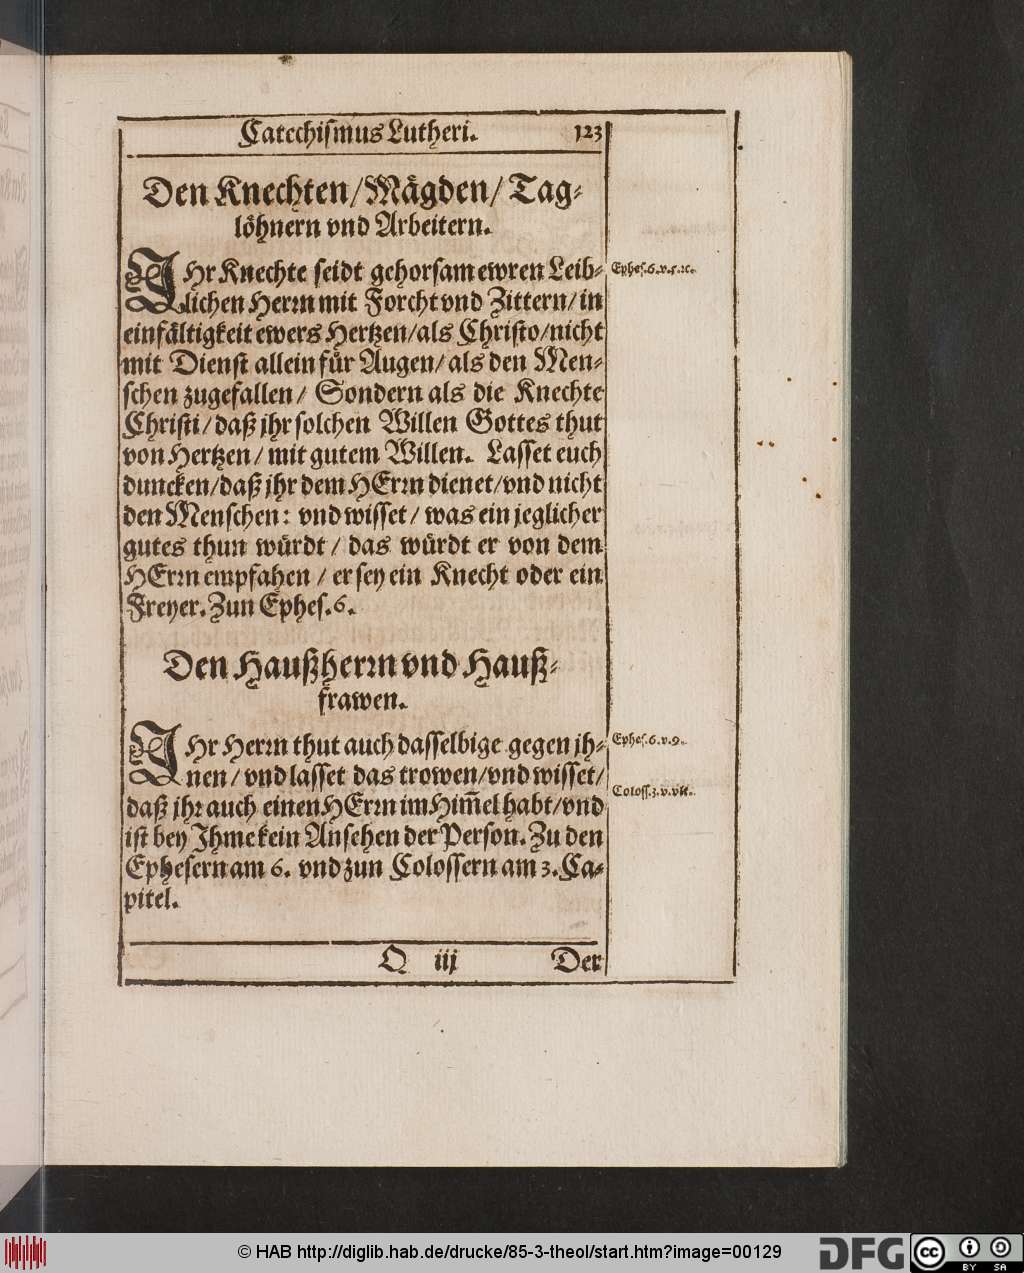 Catechiſmus Lutheri. 123
Den Knechten/Mägden/Tag⸗
löhnern vnd Arbeitern.
IHr Knechte ſeidt gehorſam ewren Leib⸗
lichen Herꝛn mit Forcht vnd Zittern/in
einfältigkeit ewers Hertzen/als Chriſto/nicht
mit Dienſt allein für Augen/als den Men⸗
ſchen zugefallen/ Sondern als die Knechte
Chriſti/daß jhr ſolchen Willen Gottes thut
von Hertzen/mit gutem Willen. Laſſet euch
duncken/daß jhr dem HErꝛn dienet/vnd nicht
den Menſchen: vnd wiſſet/was ein jeglicher
gutes thun würdt/das würdt er von dem
HErꝛn empfahen/er ſey ein Knecht oder ein
Freyer. Zun Epheſ. 6.
Epheſ. 6. v. 5. ꝛc.
Den Haußherꝛn vnd Hauß⸗
frawen.
IHr Herꝛn thut auch daſſelbige gegen jh⸗
nen/vnd laſſet das trowen/vnd wiſſet/
daß jhꝛ auch einen HErꝛn im Him̃el habt/vnd
iſt bey Ihme kein Anſehen der Perſon. Zu den
Epheſern am 6. vnd zun Coloſſern am 3. Ca⸗
pitel.
Epheſ. 6. v. 9.
Coloſſ. 3. v. vlt.
Q iij Der
© HAB http://diglib.hab.de/drucke/85-3-theol/start.htm?image=00129
DFG
cc BY SA